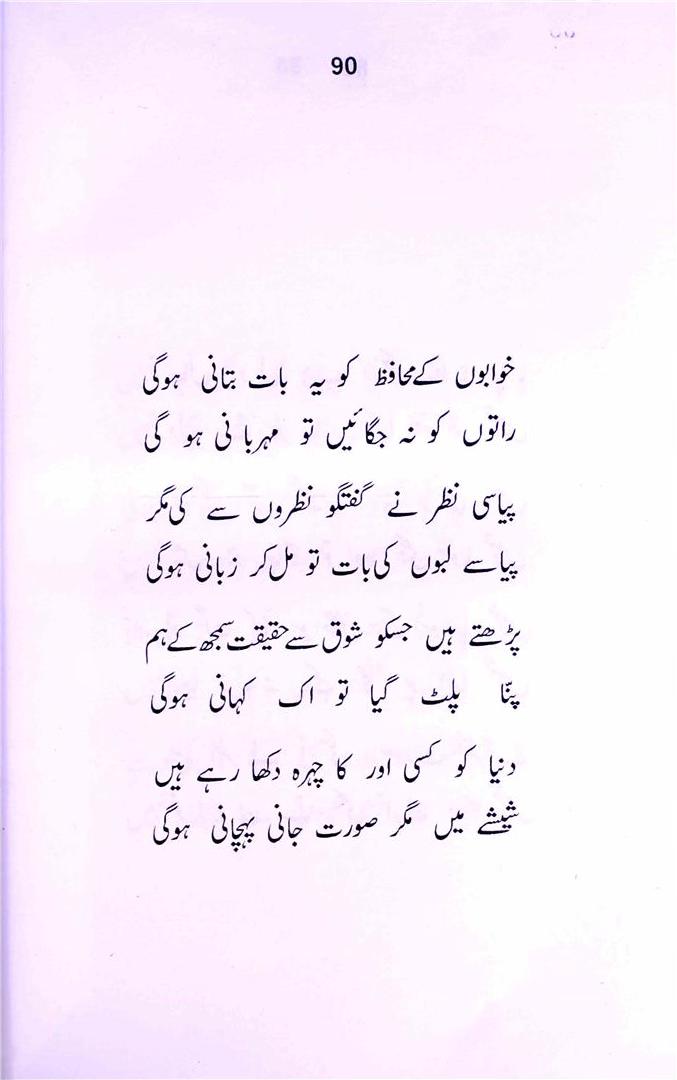 90
خوابوں کے محافظ کو یہ بات بتانی ہوگی
راتوں کو نہ جگائیں تو مہربانی ہو گی
پیاسی نظر نے گفتگو نظروں سے کی مگر
پیاسے لبوں کی بات تو مل کر زبانی ہوگی
پڑھتے ہیں جسکو شوق سے حقیقت سمجھ کے ہم
پنّا پلٹ گیا تو اک کہانی ہوگی
دنیا کو کسی اور کا چہرہ دکھا رہے ہیں
شیشے میں مگر صورت جانی پہچانی ہوگی